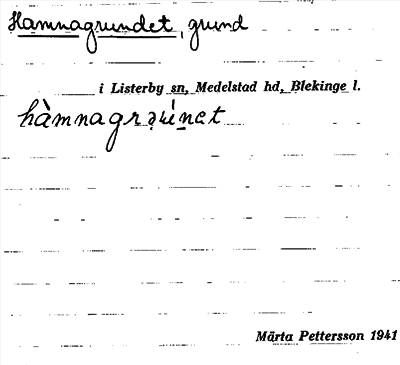 Hamnagrundet, grund
i Listerby sn, Medelstad hd, Blekinge l.
Märta Pettersson 1941